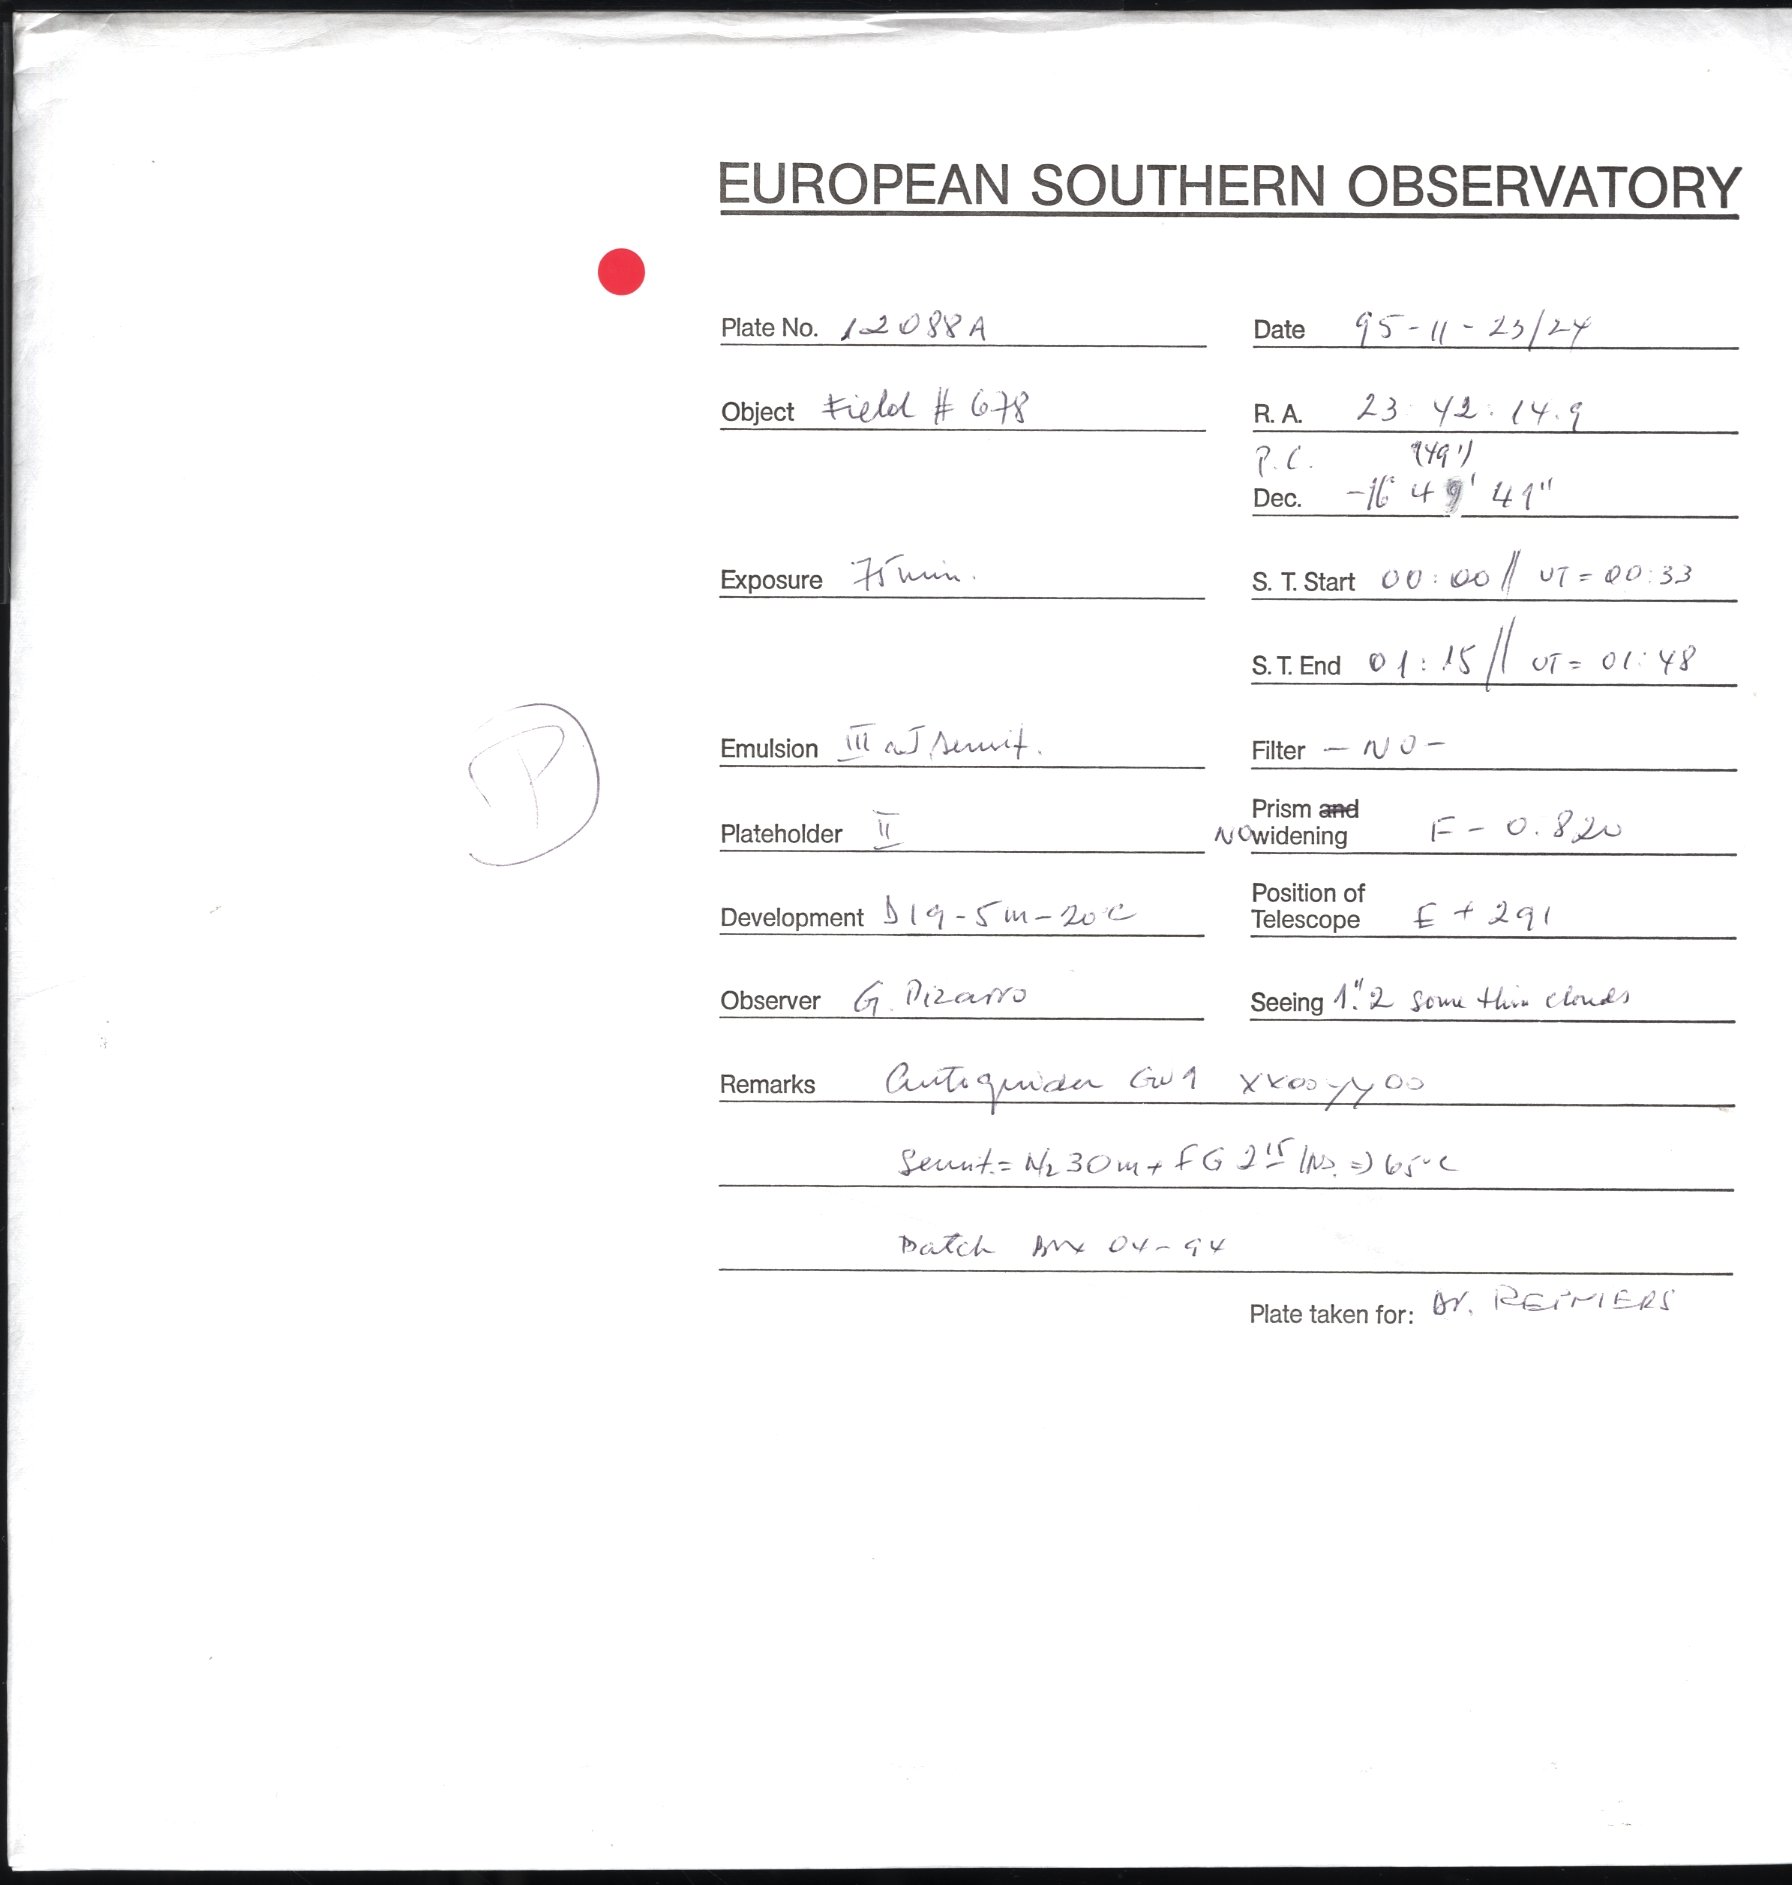 EUROPEAN SOUTHERN OBSERVATORY
Plate No. 12088A
Date 95-11-23/24
Object Field # 678
R. A. 23 42 : 14.9
P.C. (49')
Dec. -16° 49' 41"
Exposure 75 min.
S. T. Start 00:00 // UT = 00:33
S. T. End 01:15 // UT = 01:48
Emulsion III aJ sensit.
Filter - NO -
P
Plateholder II
Prism and
NO widening F - 0.820
Development D19-5m-20°C
Position of
Telescope E + 291
Observer G. Pizarro
Seeing 1".2 some thin clouds
Remarks Autoguider GW1 XX00 YY00
Sensit. = N2 30m + FG 2 15 => 65°C
Batch 04-94
Plate taken for: Dr. REIMERS